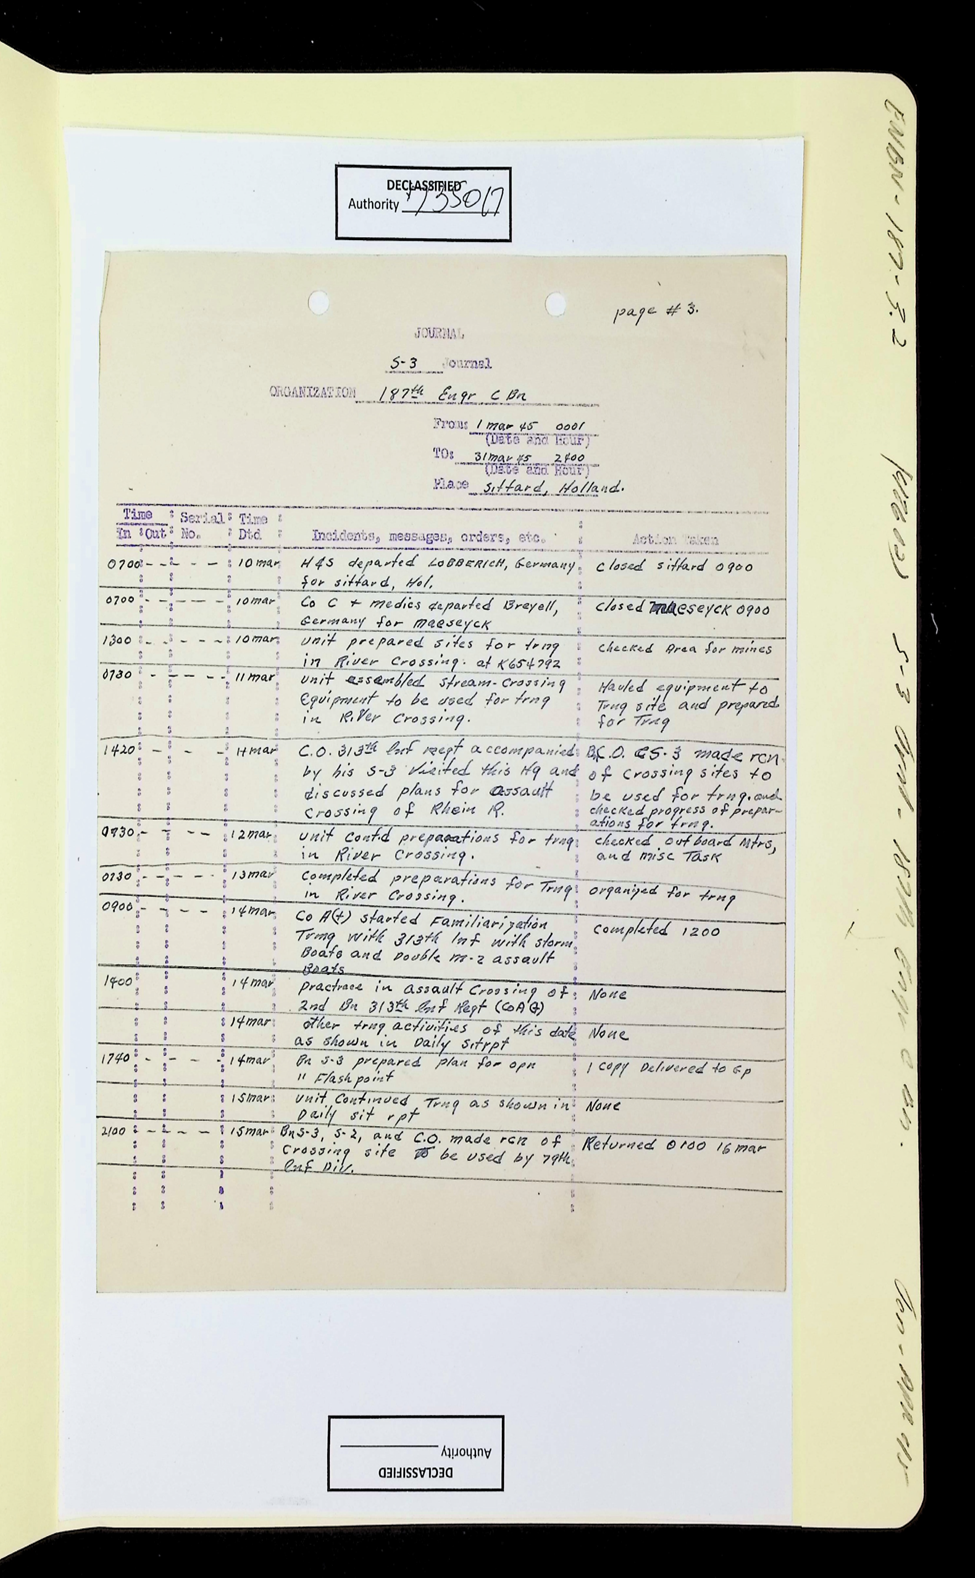 DECLASSIFIED
Authority 735017
page # 3.
JOURNAL
S-3 Journal
ORGANIZATION 187th Engr C Bn
From: 1 mar 45 0001
(Date and Hour)
TO: 31 mar 45 2400
(Date and Hour)
Place Sittard, Holland.
Time : Serial : Time
In : Out : No. : Dtd : Incidents, messages, orders, etc. : Action Taken
0700 - - - - - 10 mar H&S departed LOBBERICH, Germany closed sittard 0900
for sittard, Hol.
0700 - - - - - 10 mar Co C + medics departed Breyell, closed maeseyck 0900
Germany for maeseyck
1300 - - - - - 10 mar unit prepared sites for trng checked Area for mines
in River Crossing. at K654792
0730 - - - - - 11 mar unit assembled stream-Crossing Hauled equipment to
Equipment to be used for trng Trng site and prepared
in River Crossing. for Trng
1420 - - - 11 mar C.O. 313th Inf Regt accompanied C.O. & S-3 made rcn
by his S-3 visited this Hq and of crossing sites to
discussed plans for assault be used for trng. and
Crossing of Rhein R. checked progress of prepar-
ations for trng.
0730 - - - - 12 mar unit Contd preparations for trng checked outboard Mtrs,
in River Crossing. and misc Task
0730 - - - - - 13 mar completed preparations for Trng organized for trng
in River Crossing.
0900 - - - - 14 mar Co A(+) started Familiarization completed 1200
Trng with 313th Inf with storm
Boats and Double m-2 assault
Boats
1400 14 mar practrace in assault Crossing of None
2nd Bn 313th Inf Regt (CoA(+))
14 mar other trng activities of this date None
as shown in Daily sitrpt
1740 - - - - 14 mar Bn S-3 prepared plan for opn 1 copy Delivered to Gp
" Flashpoint
15 mar unit Continued Trng as shown in None
Daily sit rpt
2100 - - - - - 15 mar Bn S-3, S-2, and C.O. made rcn of Returned 0100 16 mar
Crossing site to be used by 79th
Inf Div.
DECLASSIFIED
Authority
ENBN-187-3.2
S-3 Jrnl. - 187th Engr C Bn.
Jan-Apr 45